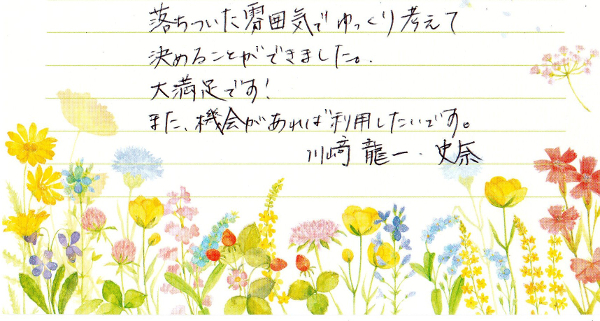 落ちついた雰囲気でゆっくり考えて
決めることができました。
大満足です!
また、機会があれば利用したいです。
川﨑 龍一・史奈